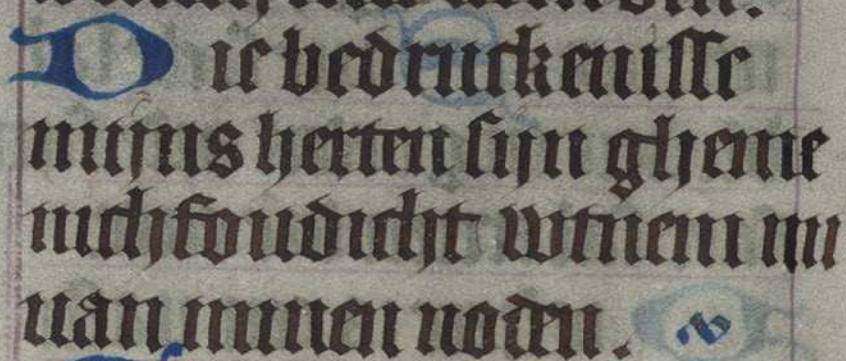 Die bedruckenisse
mijns herten sijn gheme
nichfoudicht wtnem mi
uan minen noden.